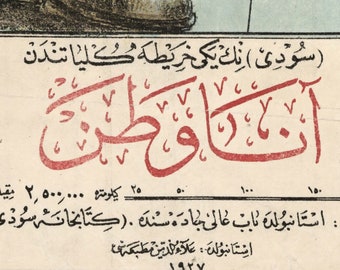 (سودی) نك یكی خریطه كلیاتندن
آنا وطن
۲٬۵۰۰٬۰۰۰ كیلومتره ۲۵ ۵۰ ۱۰۰ ۱۵۰
استانبولده باب عالی جاده سنده. (كتابخانۀ سودی
استانبولده: علاءالدین مطبعه سی
۱۹۲۷